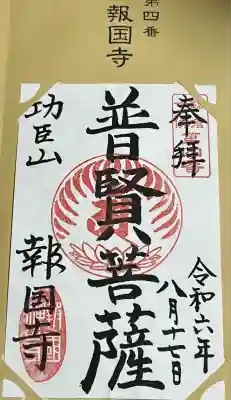 第四番
報国寺
奉拝
令和六年
八月十七日
普賢菩薩
功臣山
報国寺